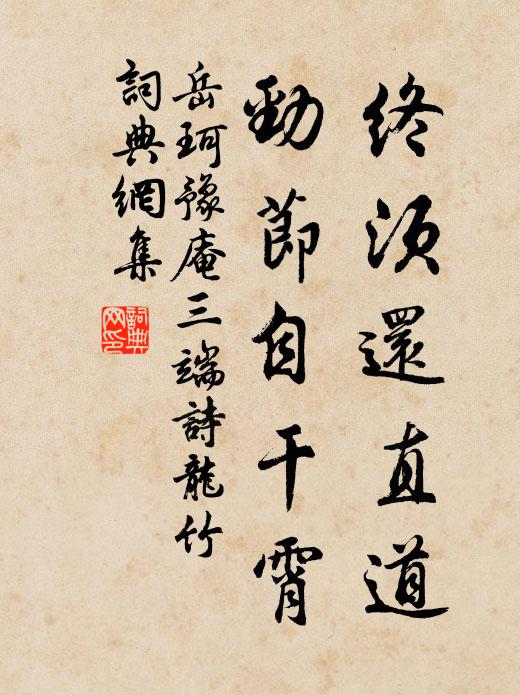 終須還直道
勁節自干霄
岳珂豫庵三端詩龍竹
詞典網集
詞典网印